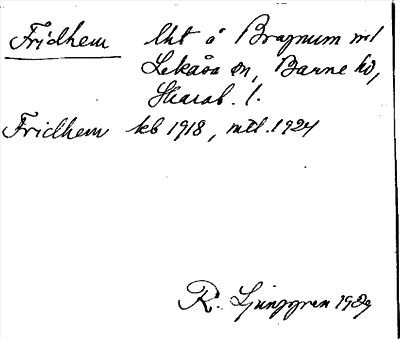 Fridhem lht å Bragnum nr 1
Lekåsa sn, Barne hd,
Skarab. l.
Fridhem kb 1918, mtl. 1924
R. Ljunggren 1929